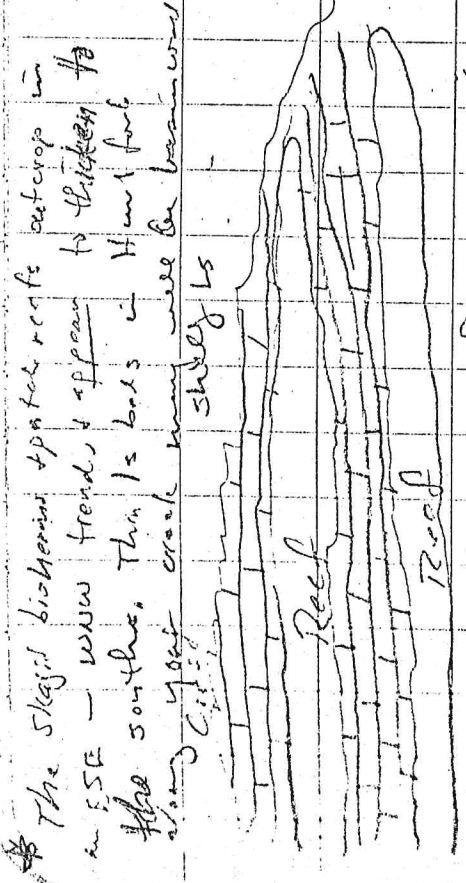 * The Skagit bioherms & patch reefs outcrop in
an ESE – WNW trend & appear to thicken to
the south. Thin ls beds in Hunt fork
along your creek may well be basinward
shaley Ls
Reef
Reef